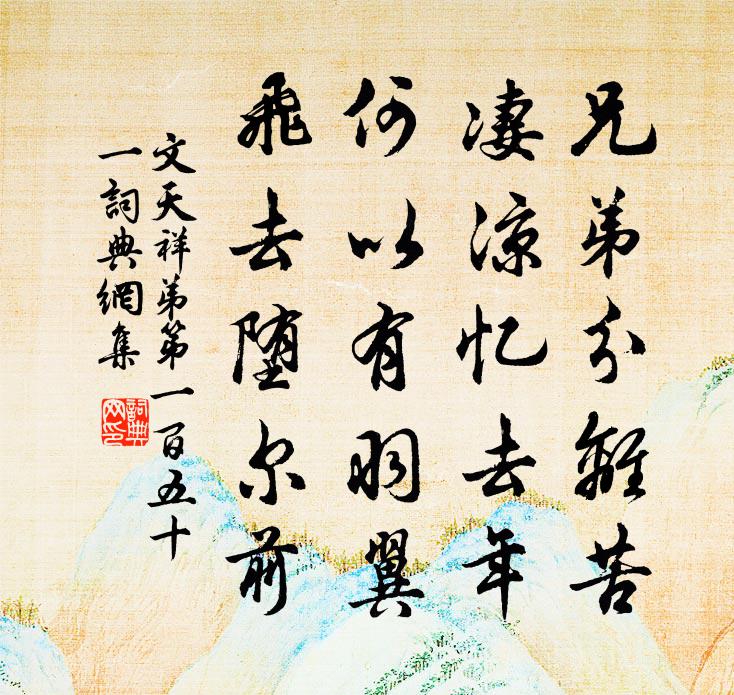 兄弟分離苦
凄凉忆去年
何以有羽翼
飛去堕尔前
文天祥弟第一百五十
一詞典網集
詞典
网印